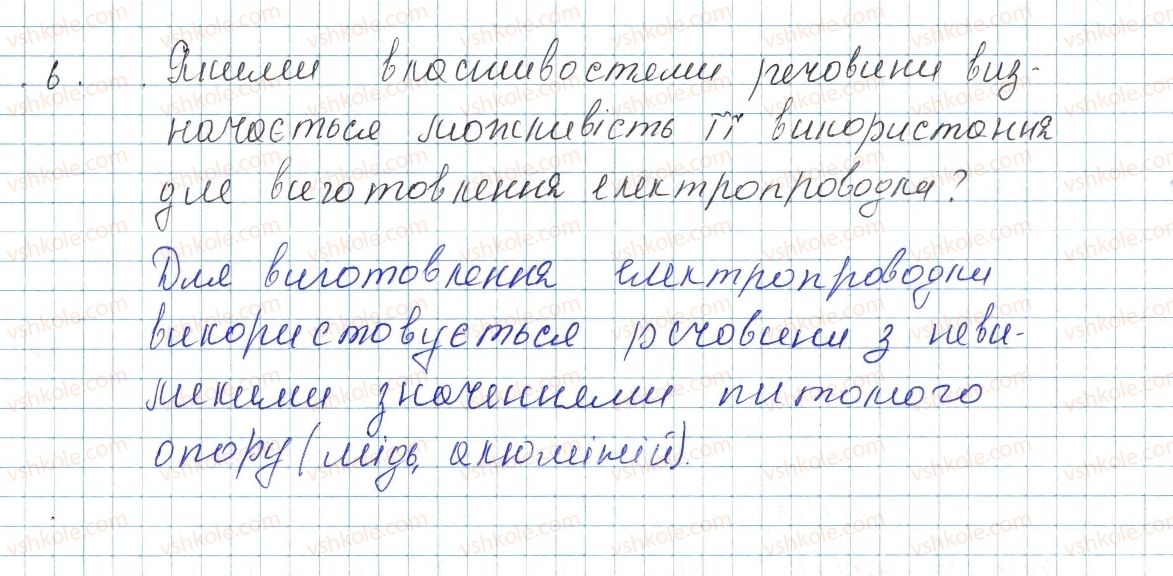 6. Якими властивостями речовини виз-
начається можливість її використання
для виготовлення електропроводки?
Для виготовлення електропроводки
використовується речовини з неве-
ликими значеннями питомого
опору (мідь, алюміній).